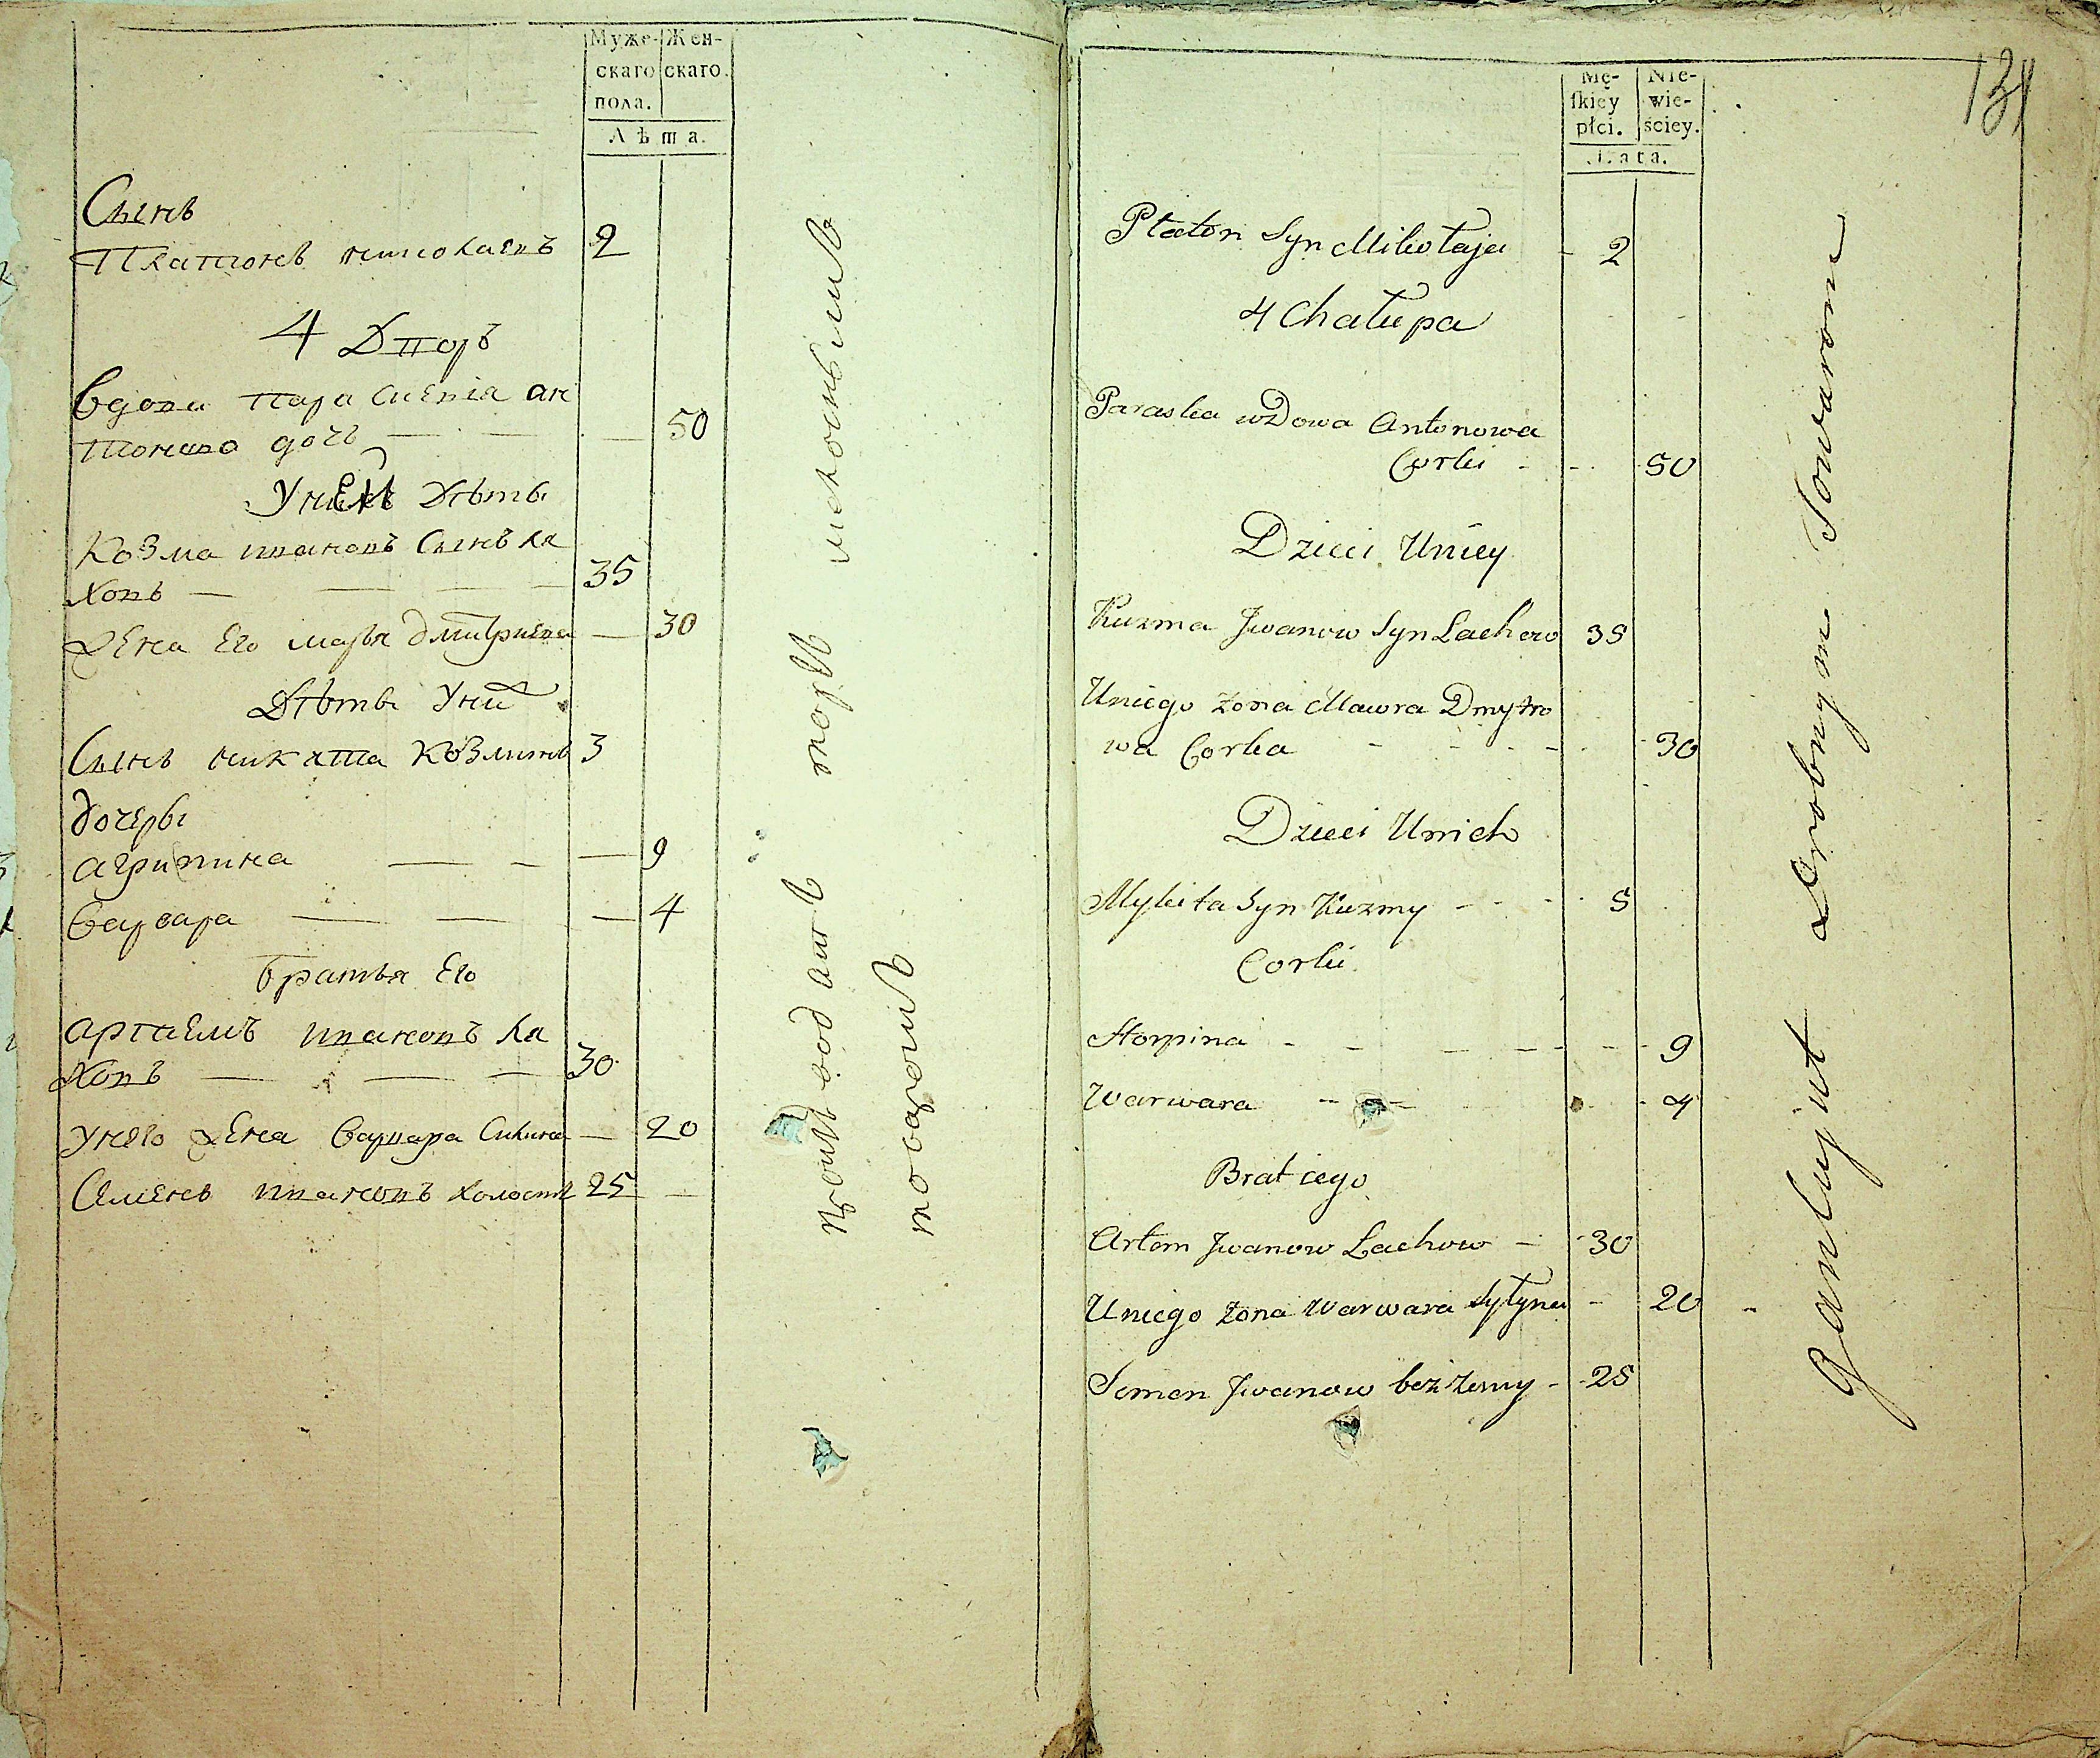 Муже- Жен-
скаго скаго.
пола.
Лѣта.
Сынъ
Платонъ николаевъ 2
4 Дворъ
Вдова Пара скевія ан
тонова дочь — — — 50
У ней Дѣти
Козма ивановъ Сынъ ля
ховъ — — — 35
жена Его мавра дмитриева — 30
Дѣти Уних
Сынъ никита козминъ 3
дочерьи
агрипина — — — 9
Варвара — — — 4
братья Его
артаемъ ивановъ ля
ховъ — — — 30
Унего жена Варвара Силина — 20
Семенъ ивановъ холостъ 25 —
производитъ торгъ мелочнымъ
товаромъ
131
Mę- Nie-
ſkiey wie-
płci. ściey.
Lata.
Płaton Syn Mikołaja - 2
4 Chałupa
Paraska wdowa Antonowa
Corki - - - 50
Dzieci Uniey
Kuzma Jwanow Syn Lachow 35
Uniego żona Mawra Dmytro
wa Corka - - - - 30
Dzieci Unich
Mykita Syn Kuzmy - - - 5
Corki
Horpina - - - - - - 9
Warwara - - - - 4
Brat iego
Artem Jwanow Lachow - 30
Uniego żona Warwara Syłyna - 20
Semen Jwanow bez żony - 25
Hanlujut Drobnym Towarom